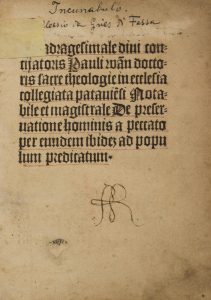 Incunabulo.
da Gries
dragesimale divi con
Pauli wāñ docto
ris sacre theologie in ecclesia
collegiata pataviēsi Nota
bile et magistrale De preser
vatione hominis a peccato
per eundem ibidez ad popu
lum predicatum.